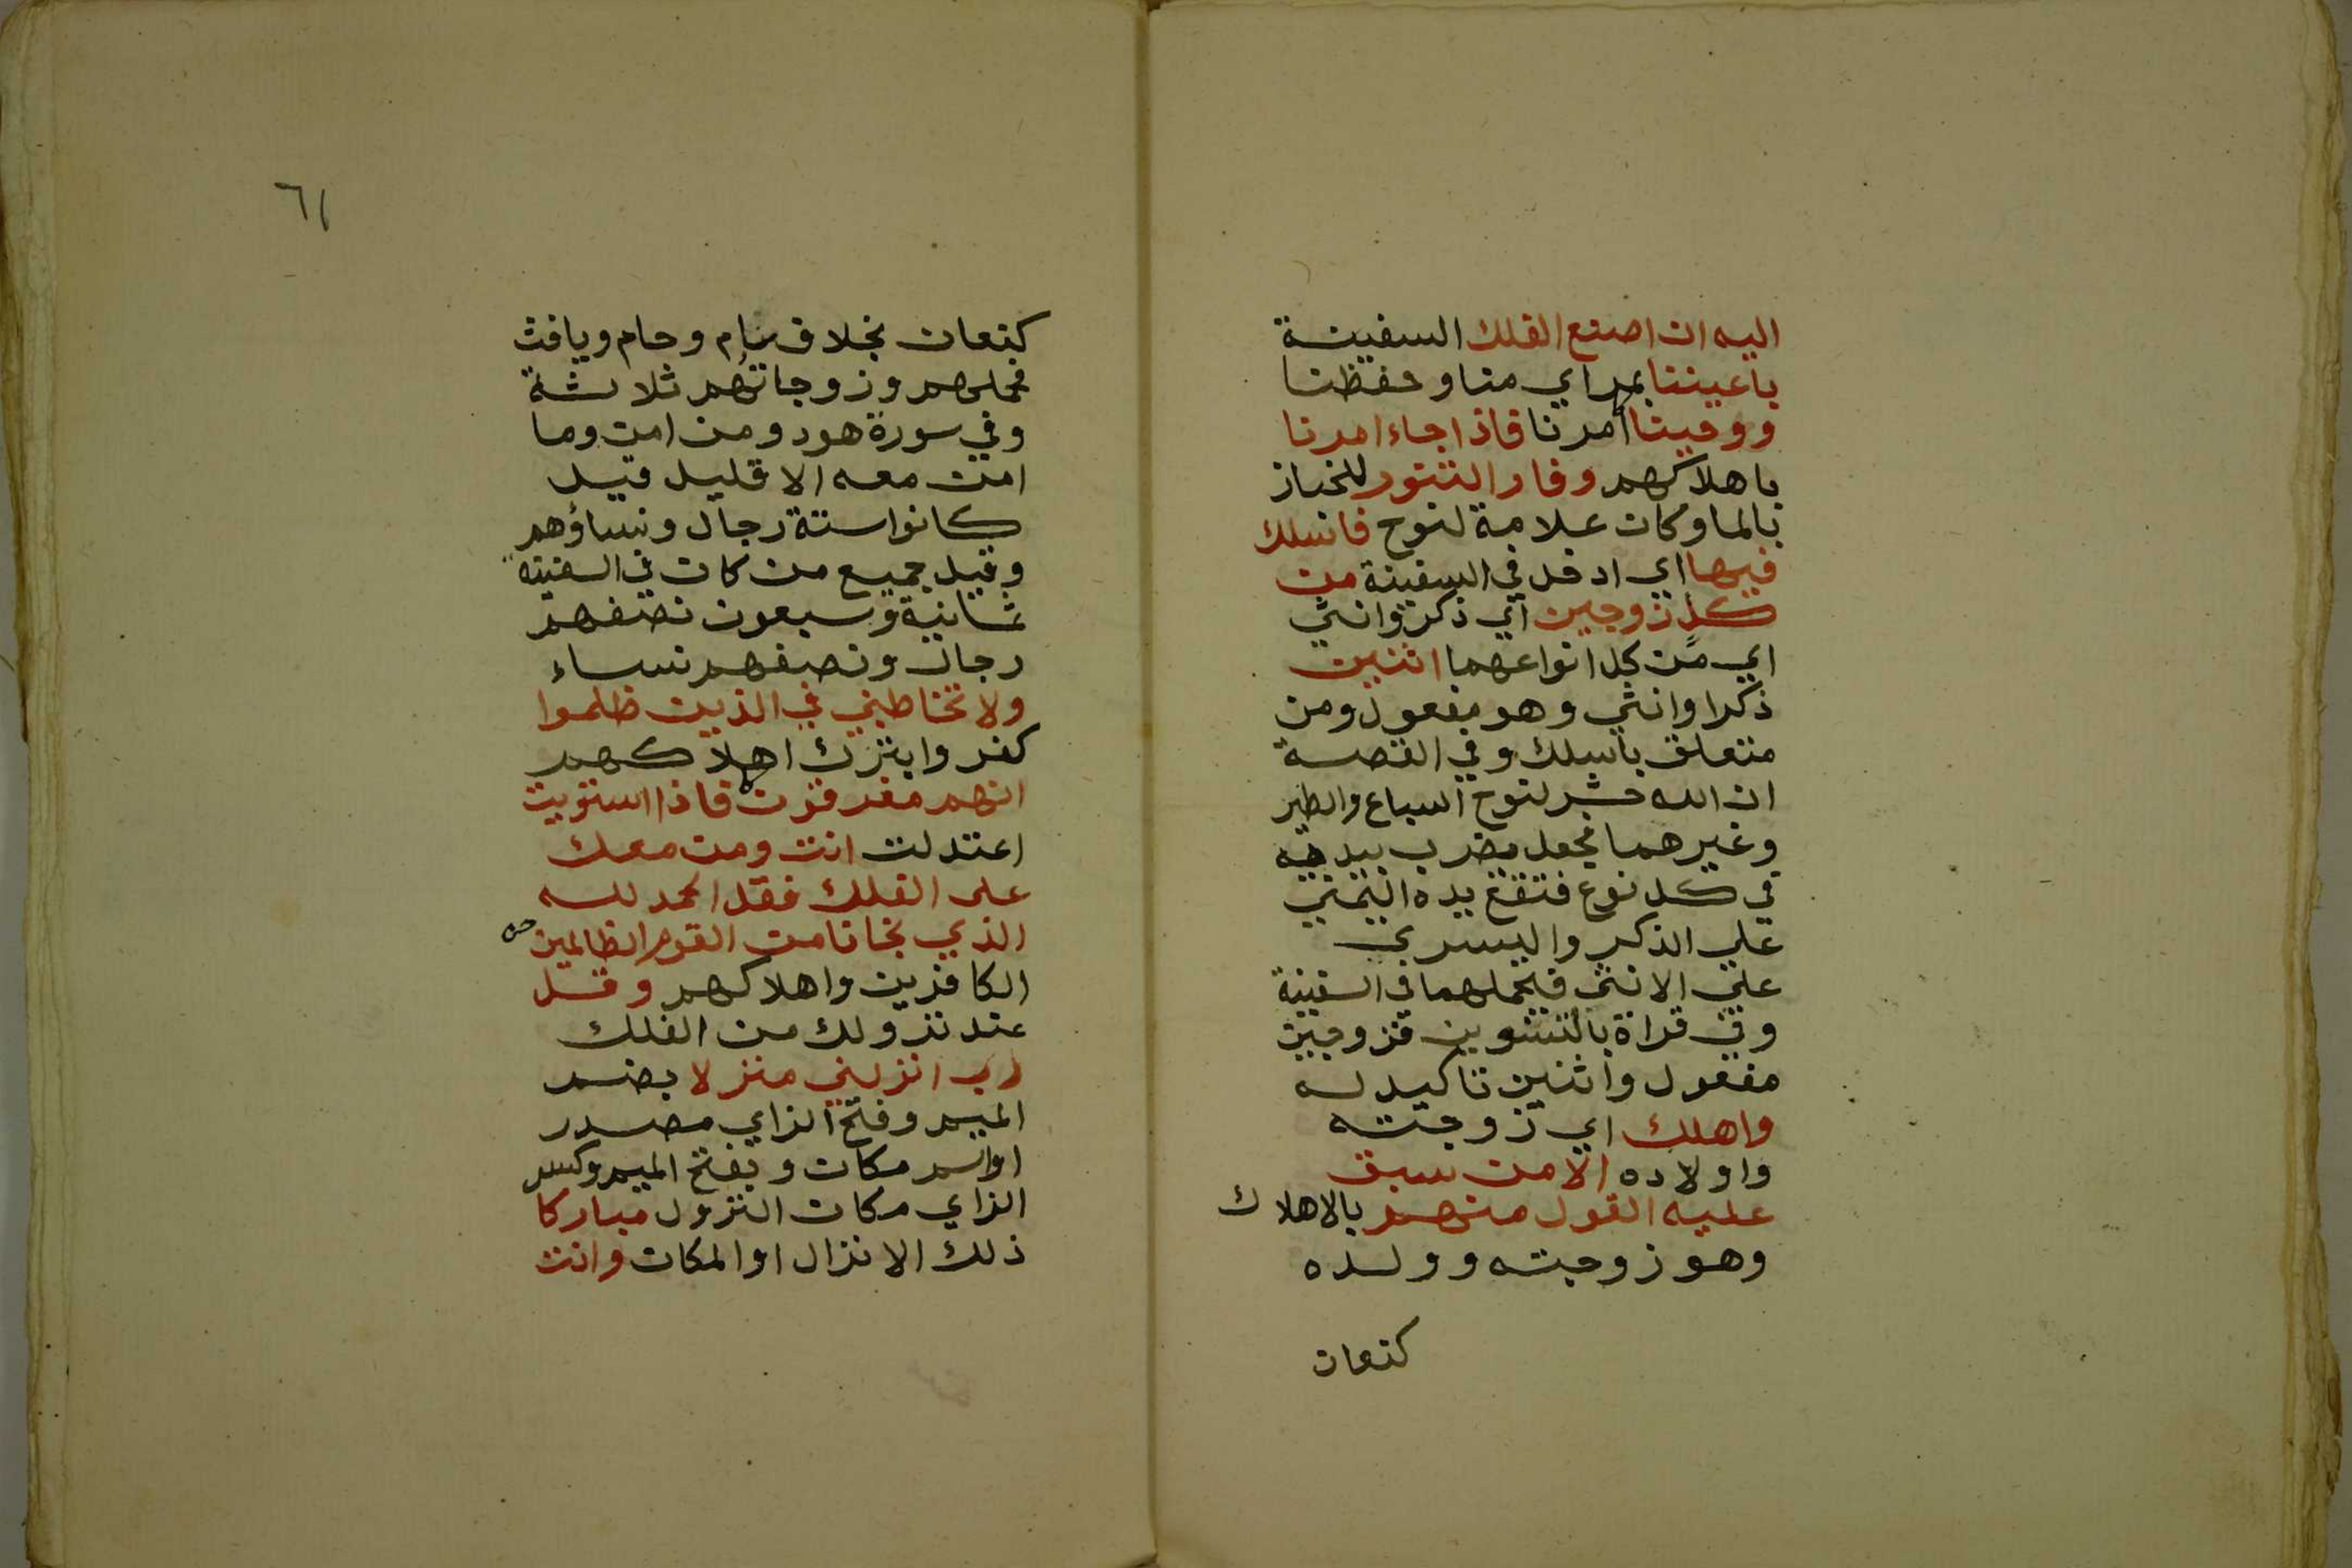 اليه ان اصنع الفلك السفينة
باعيننا بمراي منا وحفظنا
ووحينا امرنا فاذا جاء امرنا
باهلاكهم وفار التنور للخباز
بالما وكان علامة لنوح فاسلك
فيها اي ادخل في السفينة من
كل زوجين اي ذكر وانثي
اي من كل انواعهما اثنين
ذكرا وانثي وهو مفعول ومن
متعلق باسلك وفي القصة
ان الله حشر لنوح السباع والطير
وغيرهما فجعل يضرب بيديه
في كل نوع فتقع يده اليمني
علي الذكر واليسري
علي الانثي فيحملهما في السفينة
وفي قراة بالتنوين فزوجين
مفعول واثنين تاكيد له
واهلك اي زوجته
واولاده الا من سبق
عليه القول منهم بالاهلاك
وهو زوجته وولده
كنعان
٦١
كنعان بخلاف سام وحام ويافث
فحملهم وزوجاتهم ثلاثة
وفي سورة هود ومن امن وما
امن معه الا قليل قيل
كانوا ستة رجال ونساؤهم
وقيل جميع من كان في السفينة
ثمانية وسبعون نصفهم
رجال ونصفهم نساء
ولا تخاطبني في الذين ظلموا
كفروا بترك اهلاكهم
انهم مغرقون فاذا استويت
اعتدلت انت ومن معك
علي الفلك فقل الحمد لله
الذي نجانا من القوم الظالمين
الكافرين واهلاكهم وقل
عند نزولك من الفلك
رب انزلني منزلا بضم
الميم وفتح الزاي مصدر
او اسم مكان وبفتح الميم وكسر
الزاي مكان النزول مباركا
ذلك الانزال او المكان وانت